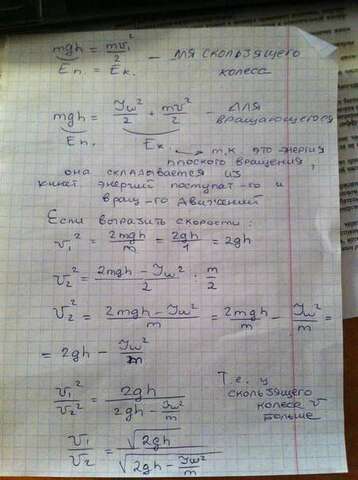 mgh = mv₁²/2 — для скользящего
Eп. = Eк. колеса
mgh = Jω²/2 + mv²/2 — для вращающегося
Eп. Eк. → т.к это энергия
плоского вращения,
она складывается из
кинет энергий поступат-го и
вращ-го движений
Если выразить скорости:
v₁² = 2mgh/m = 2gh/1 = 2gh
v₂² = (2mgh - Jω²)/2 : m/2
v₂² = (2mgh - Jω²)/m = 2mgh/m - Jω²/m =
= 2gh - Jω²/m
v₁²/v₂² = 2gh/(2gh - Jω²/m)
Т.е. у
скользящего
колеса v
больше
v₁/v₂ = √(2gh)/√(2gh - Jω²/m)